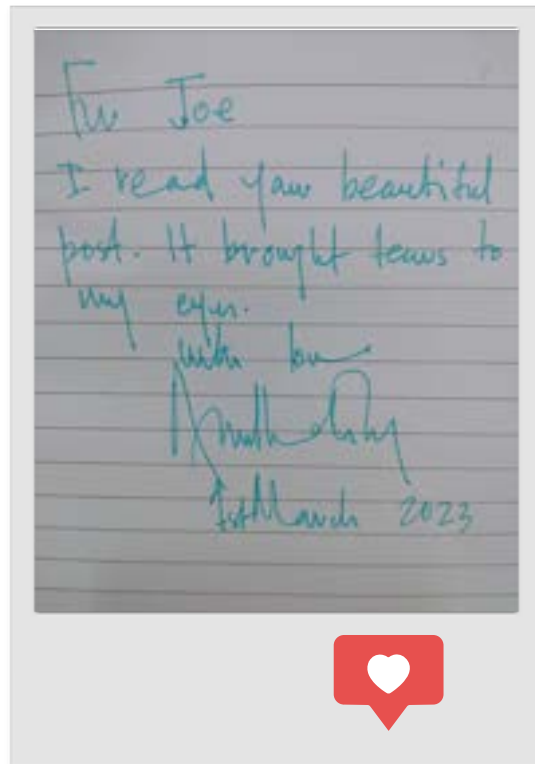 For Joe
I read your beautiful
post. It brought tears to
my eyes.
with love
1st March 2023